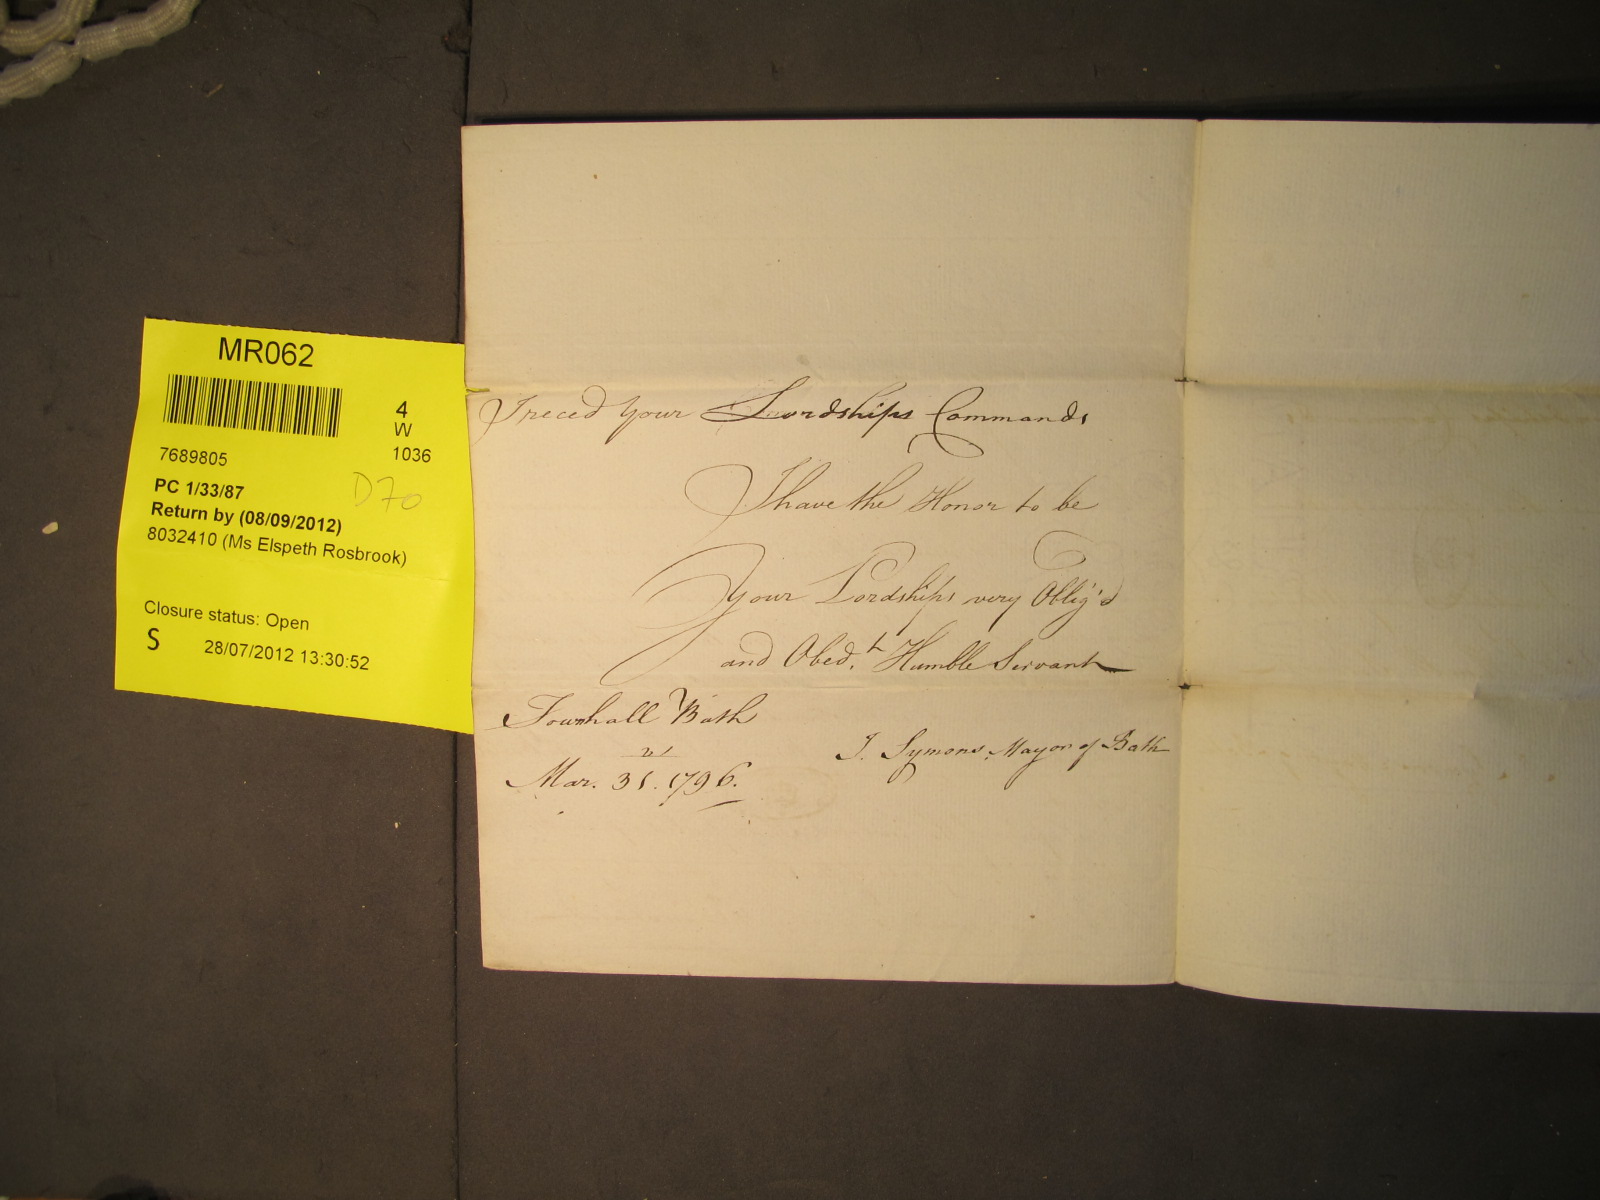 MR062
4
W
7689805
1036
PC 1/33/87
D70
Return by (08/09/2012)
8032410 (Ms Elspeth Rosbrook)
Closure status: Open
S
28/07/2012 13:30:52
I reced Your Lordships Commands
I have the Honor to be
Your Lordships very Oblig'd
and Obed.t Humble Servant
Townhall Bath
Mar. 31. 1796.
J. Symons Mayor of Bath